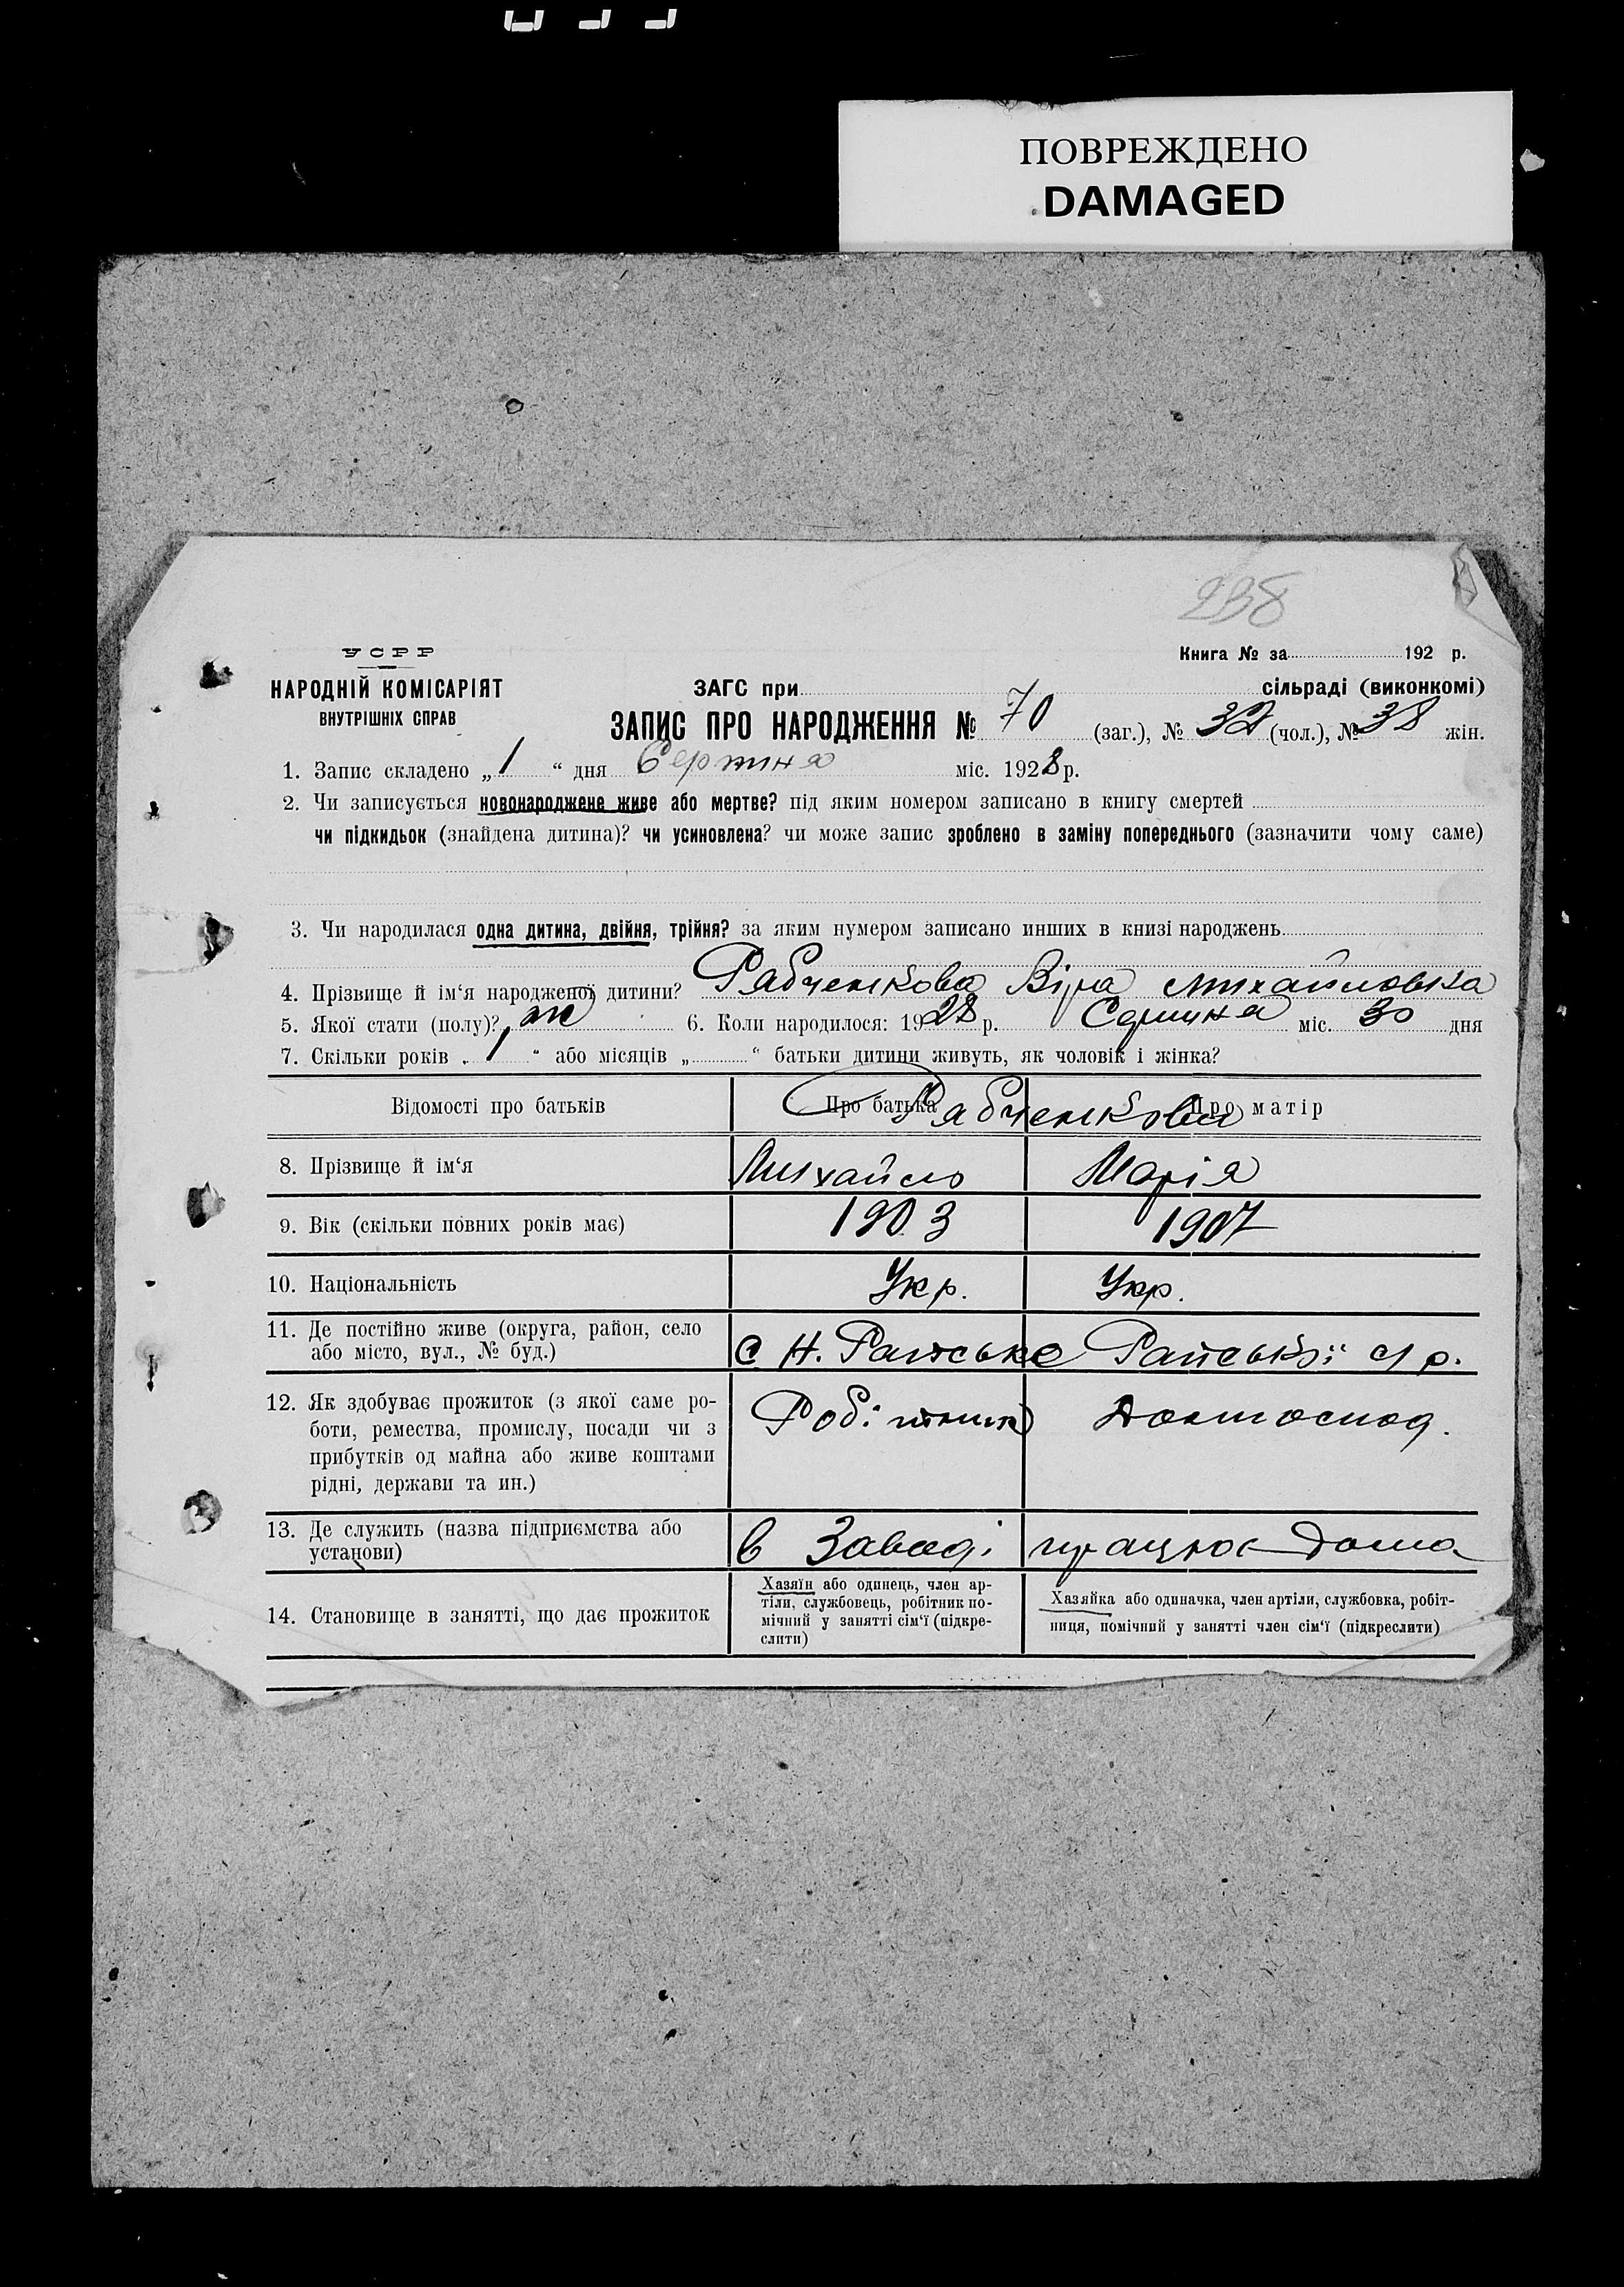 ПОВРЕЖДЕНО
DAMAGED
238
УСРР
Книга № за 192 р.
НАРОДНІЙ КОМІСАРІЯТ
ВНУТРІШНІХ СПРАВ
ЗАГС при сільраді (виконкомі)
ЗАПИС ПРО НАРОДЖЕННЯ № 70 (заг.), № 32 (чол.), № 38 жін.
1. Запис складено „ 1 “ дня Серпния міс. 1928 р.
2. Чи записується новонароджене живе або мертве? під яким номером записано в книгу смертей
чи підкидьок (знайдена дитина)? чи усиновлена? чи може запис зроблено в заміну попереднього (зазначити чому саме)
3. Чи народилася одна дитина, двійня, трійня? за яким нумером записано инших в книзі народжень
4. Прізвище й ім‘я народженої дитини? Рябченкова Віра Михайловна
5. Якої стати (полу)? ж 6. Коли народилося: 1928 р. міс. 30 дня
7. Скільки років „ 1 “ або місяців „ “ батьки дитини живуть, як чоловік і жінка?
Відомості про батьків Про батька Про матір
Рябченкови
8. Прізвище й ім‘я Михайло Марія
9. Вік (скільки повних років має) 1903 1907
10. Національність Укр. Укр.
11. Де постійно живе (округа, район, село
або місто, вул., № буд.) с Н. Райське Райської с/р.
12. Як здобуває прожиток (з якої саме ро-
боти, ремества, промислу, посади чи з
прибутків од майна або живе коштами
рідні, держави та ин.)
Робітник Домгоспод.
13. Де служить (назва підприємства або
установи) в Заводі працює дома
14. Становище в занятті, що дає прожиток
Хазяїн або одинець, член ар-
тіли, службовець, робітник по-
мічний у занятті сім‘ї (підкре-
слити)
Хазяйка або одиначка, член артіли, службовка, робіт-
ниця, помічний у занятті член сім‘ї (підкреслити)